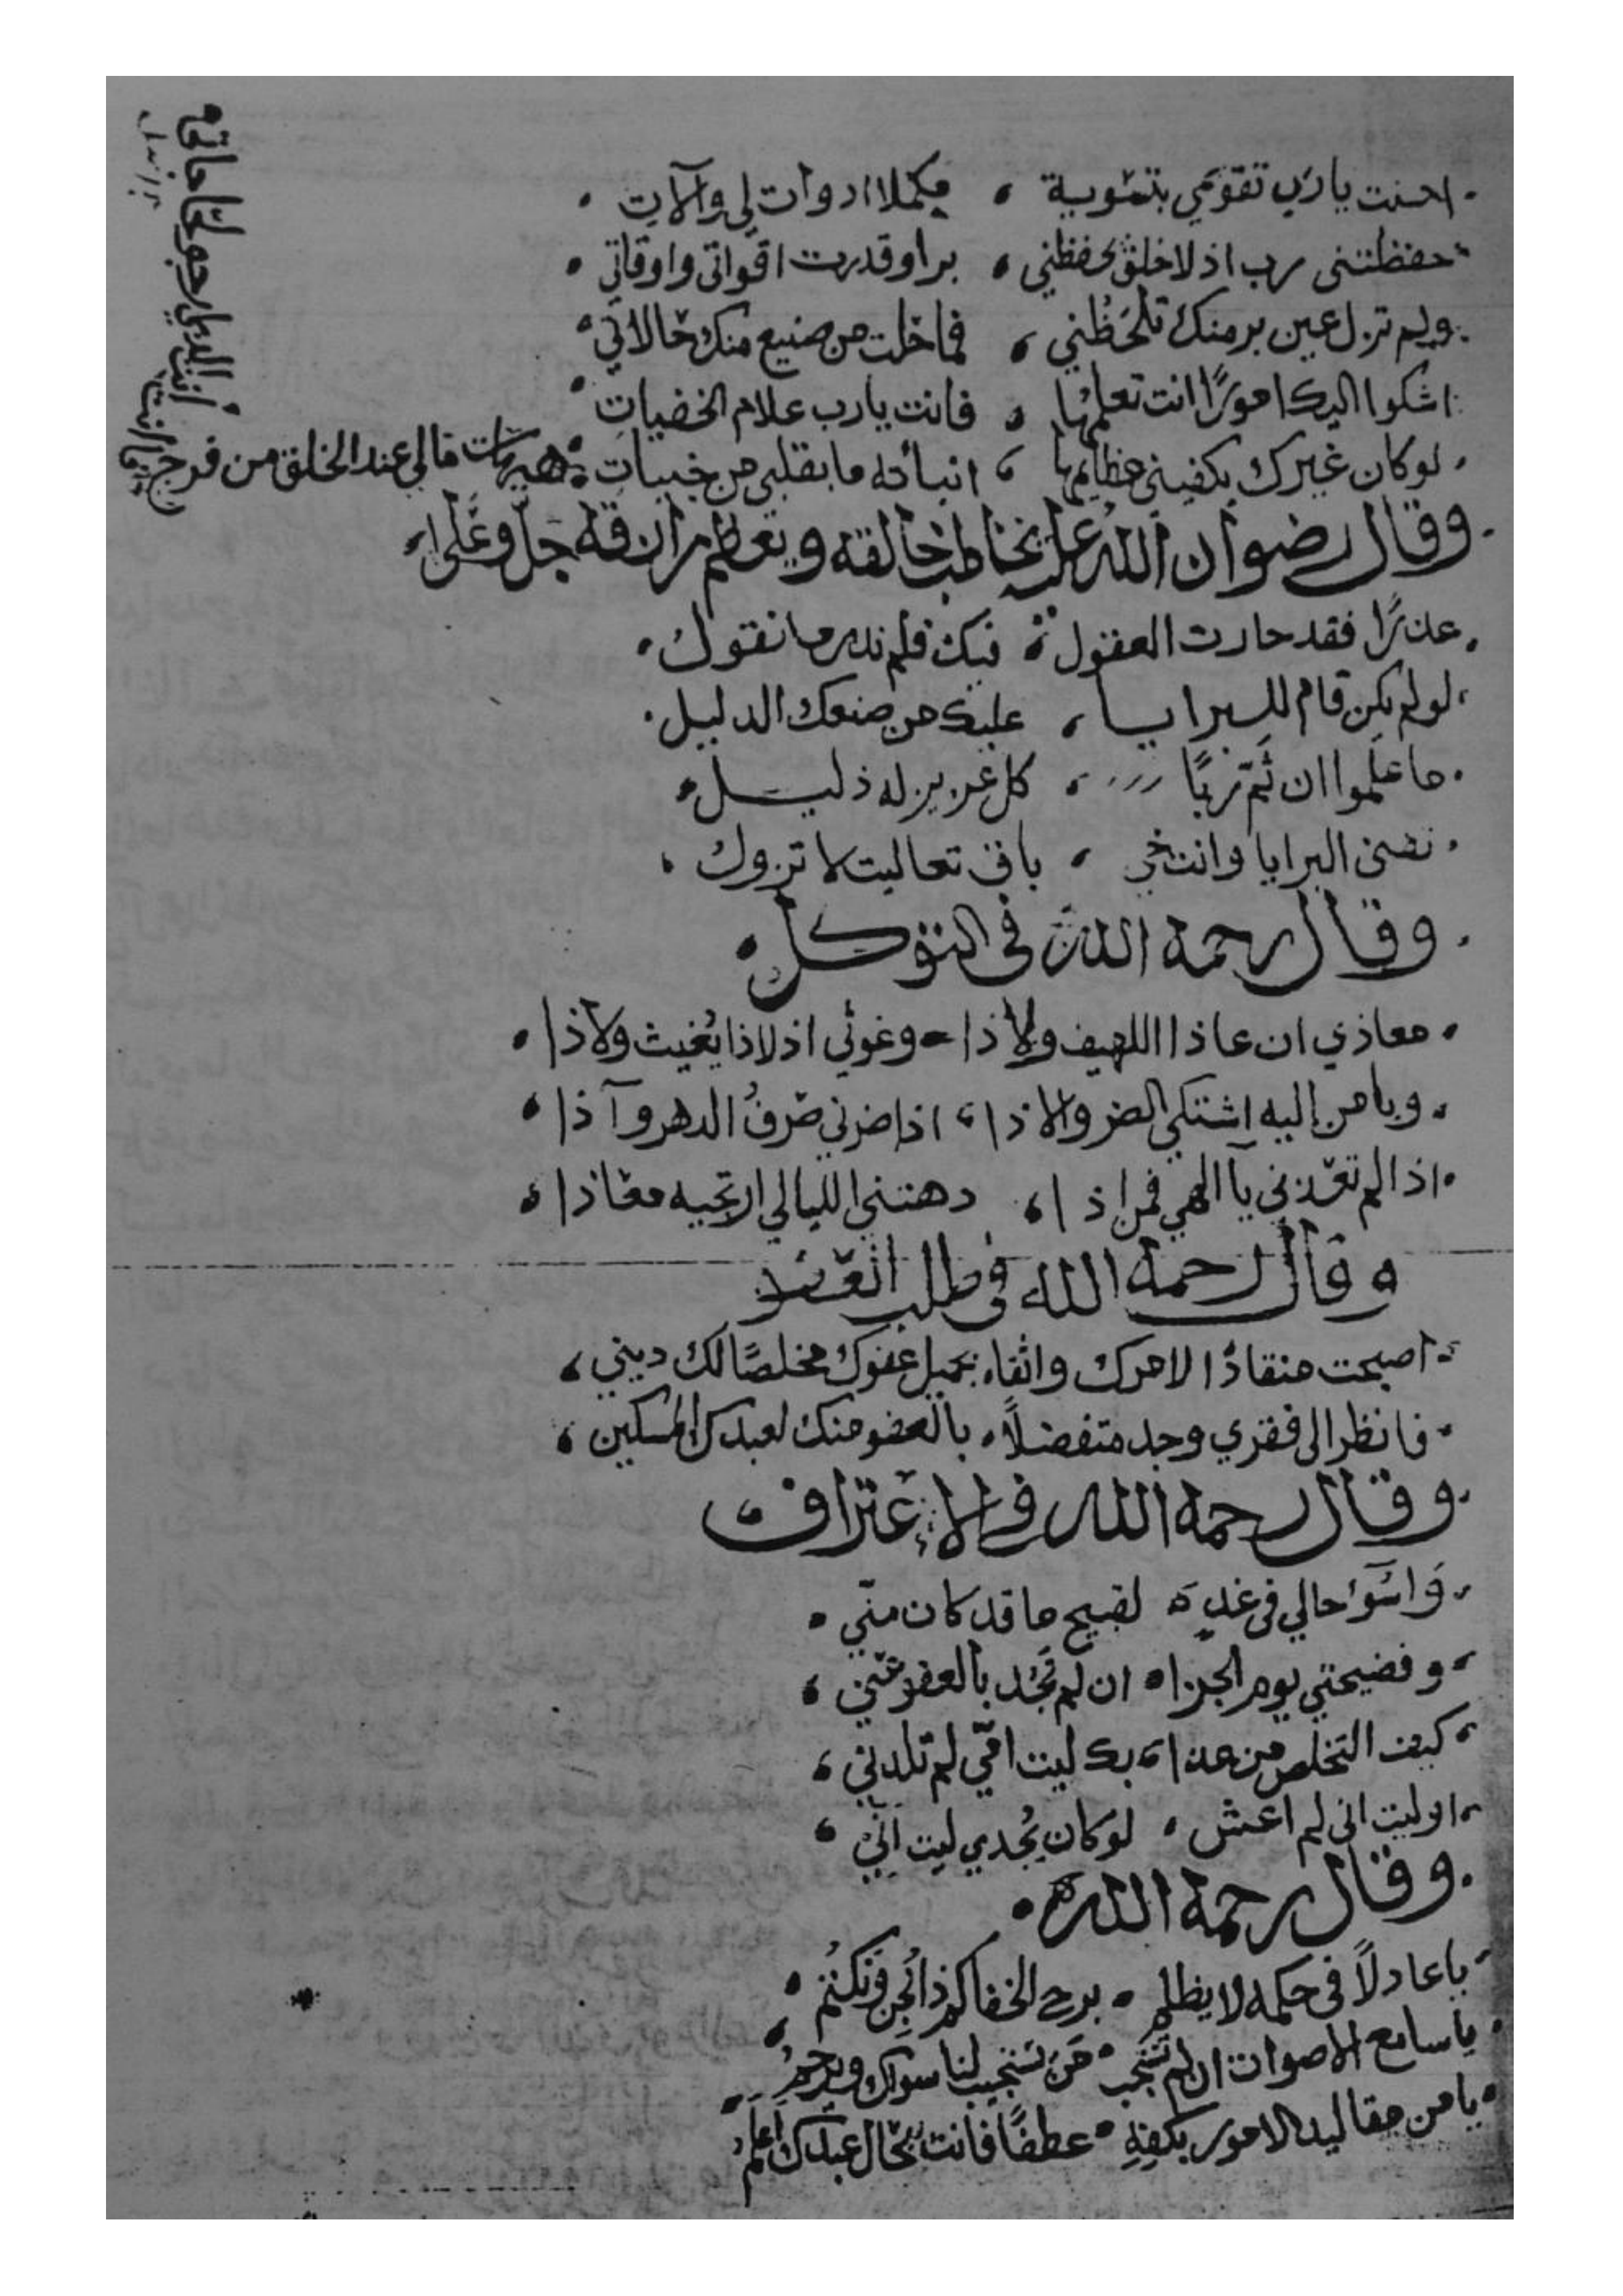 احسنت يا رب تقويمي بتسوية ، مكملا ادوات لي وآلات
حفظتني رب اذ لا خلق يحفظني ، برا وقدرت اقواتي واوقاتي
ولم تزل عين بر منك تلحظني ، فما خلت من صنيع منك حالاتي
اشكوا اليك امورًا انت تعلمها ، فانت يا رب علام الخفيات
لو كان غيرك يكفيني عظايمها ، انبأته ما بقلبي من خبيات
هيهات مالي عند الخلق من فرج
وقال رضوان الله عليه يخاطب خالقه ويعظم رازقه جل وعلا
عذرًا فقد حارت العقول ، فيك فلم ندر ما نقول
لو لم يكن قام للبرايا ، عليك من صنعك الدليل
ما علموا ان ثم ربًا ، كل عزيز له ذليل
تفنى البرايا وانت حي ، باق تعاليت لا تزول
وقال رحمه الله في التوكل
معاذي ان عاذا اللهيف ولاذا وغوثي اذ لا ذا يُغيث ولا ذا
ويا من إليه اشتكي الضر والاذا ، اذا ضرني صرفُ الدهر وآذا
اذا لم تعذني يا الهي فمن اذا ، دهتني الليالي ارتجيه معاذا
وقال رحمه الله في طلب العفو
اصبحت منقادًا لامرك واثقا ، بجميل عفوك مخلصًا لك ديني
فانظر الى فقري وجد متفضلاً ، بالعفو منك لعبدك المسكين
وقال رحمه الله في الاعتراف
واسوأ حالي في غدٍ لقبيح ما قد كان منّي
وفضيحتي يوم الجزا ان لم تجُد بالعفو عني
كيف التخلص من عذابك ليت امّي لم تلدني
او ليت اني لم اعش ، لو كان يُجدي ليت اني
وقال رحمه الله
يا عادلاً في حكمه لا يظلم برح الخفا كم ذا نُجن ونكتُم
يا سامع الاصوات ان لم تستجب من يستجيب لنا سواك ويرحمُ
يا من مقاليد الامور بكفهِ عطفًا فانت بحال عبدك اعلمُ